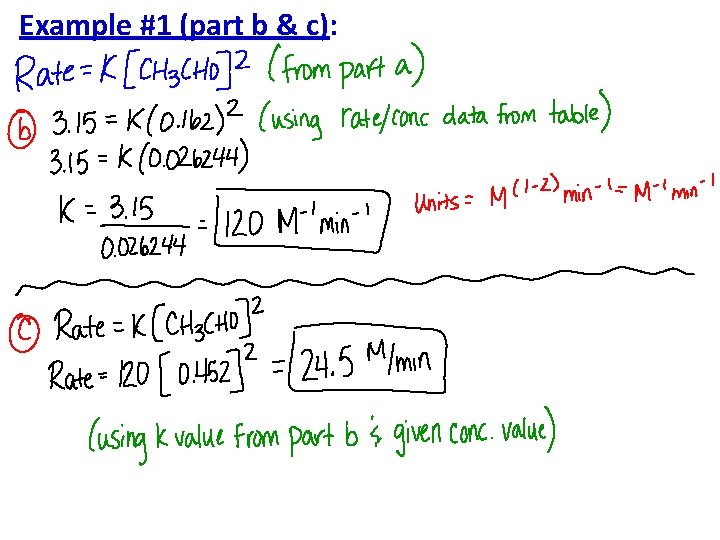 Example #1 (part b & c):
Rate = K[CH₃CHO]² (from part a)
b 3.15 = K(0.162)² (using rate/conc data from table)
3.15 = K(0.026244)
K = 3.15 / 0.026244 = 120 M⁻¹ min⁻¹ Units = M⁽¹⁻²⁾ min⁻¹ = M⁻¹ min⁻¹
c Rate = K[CH₃CHO]²
Rate = 120[0.452]² = 24.5 M/min
(using K value from part b & given conc. value)